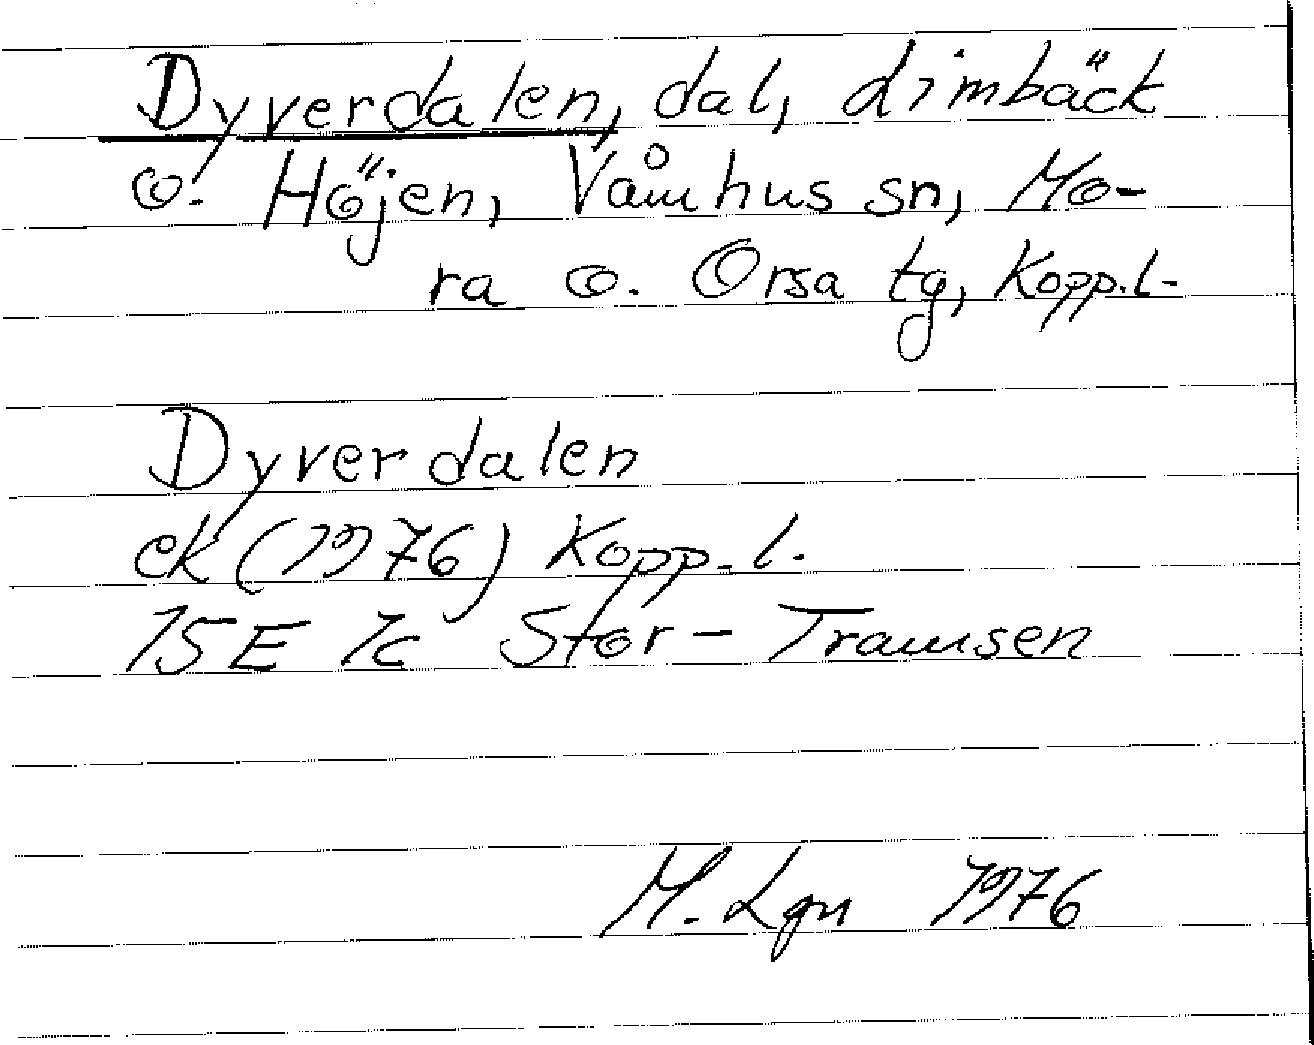 Dyverdalen, dal, Limbäck
o. Höjen, Våmhus sn, Mo-
ra o. Orsa tg, Kopp.l.
Dyverdalen
ek (1976) Kopp.l.
15E 7c Stor-Tramsen
M. Lgn 1976